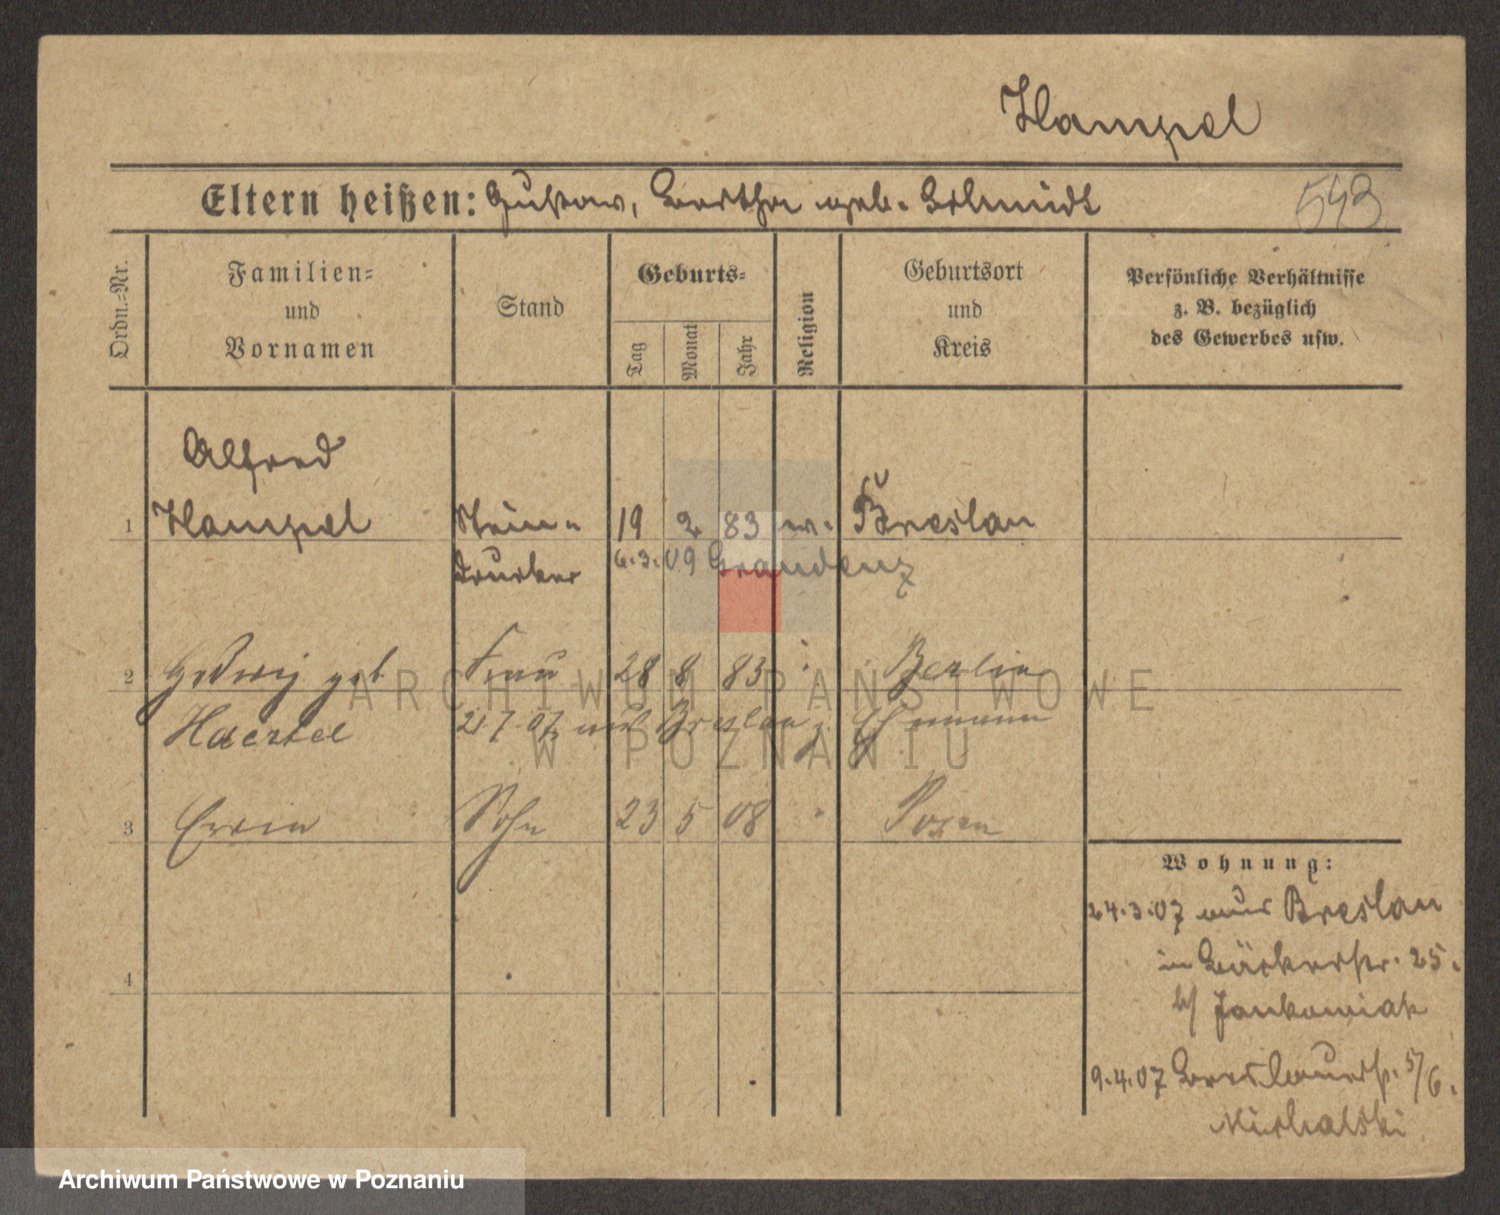 Hampel
Eltern heißen: Gustav, Bertha geb. Schmidt
543
Ordn.-Nr.
Familien-
und
Vornamen
Stand
Geburts-
Tag
Monat
Jahr
Religion
Geburtsort
und
Kreis
Persönliche Verhältnisse
z. B. bezüglich
des Gewerbes usw.
Alfred
1 Hampel Stein- 19 2 83 ev. Breslau
drucker 6.3.09 Graudenz
2 Hedwig geb Frau 28 8 83 Berlin
Haertel 21 7. 07 Breslau z. Ehemann
3 Erwin Sohn 23 5 08 " Posen
4
Wohnung:
24.3.07 aus Breslau
in Bäckerstr. 25.
b/ Jankowiak
9.4.07 Breslauerstr. 5/6.
Michalski
ARCHIWUM PAŃSTWOWE
W POZNANIU
Archiwum Państwowe w Poznaniu